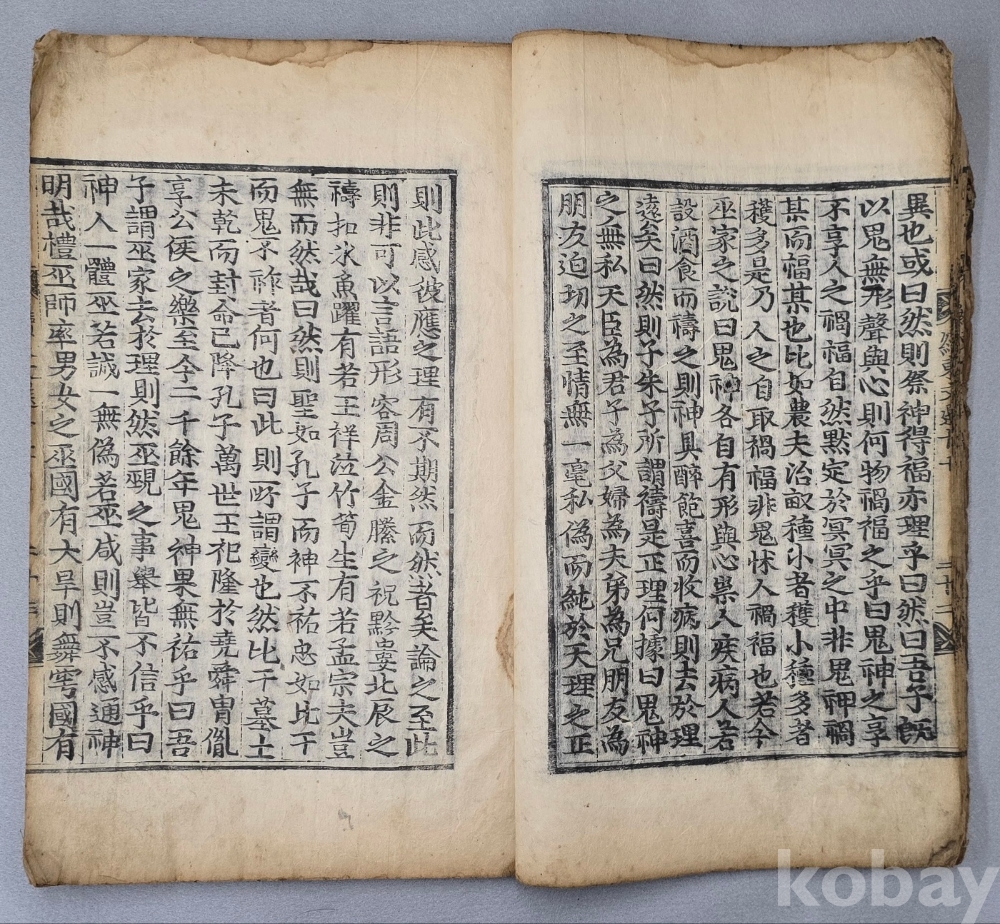 異也或曰然則祭神得福亦理乎曰然曰吾子旣
以鬼無形聲與心則何物禍福之乎曰鬼神之享
不享人之禍福自然黙定於冥冥之中非鬼神禍
某而福某也比如農夫治畝種小者穫小種多者
穫多是乃人之自取禍福非鬼怵人禍福也若今
巫家之說曰鬼神各自有形與心祟入疾病人若
設酒食而禱之則神具醉飽喜而收疾則去於理
遠矣曰然則子朱子所謂禱是正理何據曰鬼神
之無私天臣為君子為父婦為夫弟為兄朋友為
朋友迫切之至情無一毫私偽而純於天理之正
則此感彼應之理有不期然而然者矣論之至此
則非可以言語形容周公金縢之祝黔婁北辰之
禱扣氷魚躍有若王祥泣竹筍生有若孟宗夫豈
無而然哉曰然則聖如孔子而神不祐忠如比干
而鬼不祚者何也曰此則所謂變也然比干墓土
未乾而封命已降孔子萬世王祀隆於堯舜冑胤
享公侯之樂至今二千餘年鬼神果無祐乎曰吾
子謂巫家去於理則然巫覡之事舉皆不信乎曰
神人一體巫若誠一無偽若巫咸則豈不感通神
明哉禮巫師率男女之巫國有大旱則舞雩國有
kobay